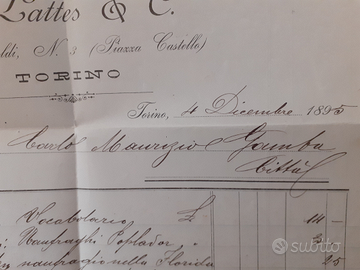 Lattes & C.
ldi, N. 3 (Piazza Castello)
TORINO
Torino, 4 Dicembre 1895
Carlo Maurizio Gamba
Città
Vocabolario £ 14
Naufraghi Poplador „
naufragio nella Florida 25
subito